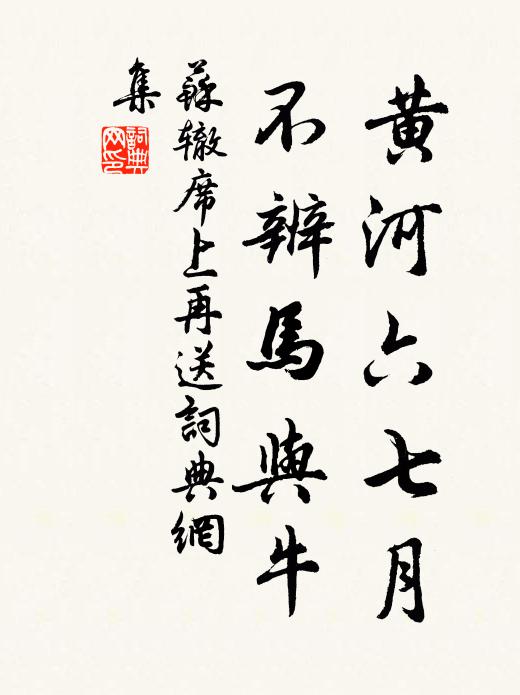 黃河六七月
不辨馬與牛
蘇轍席上再送詞典網
集
詞典
网印